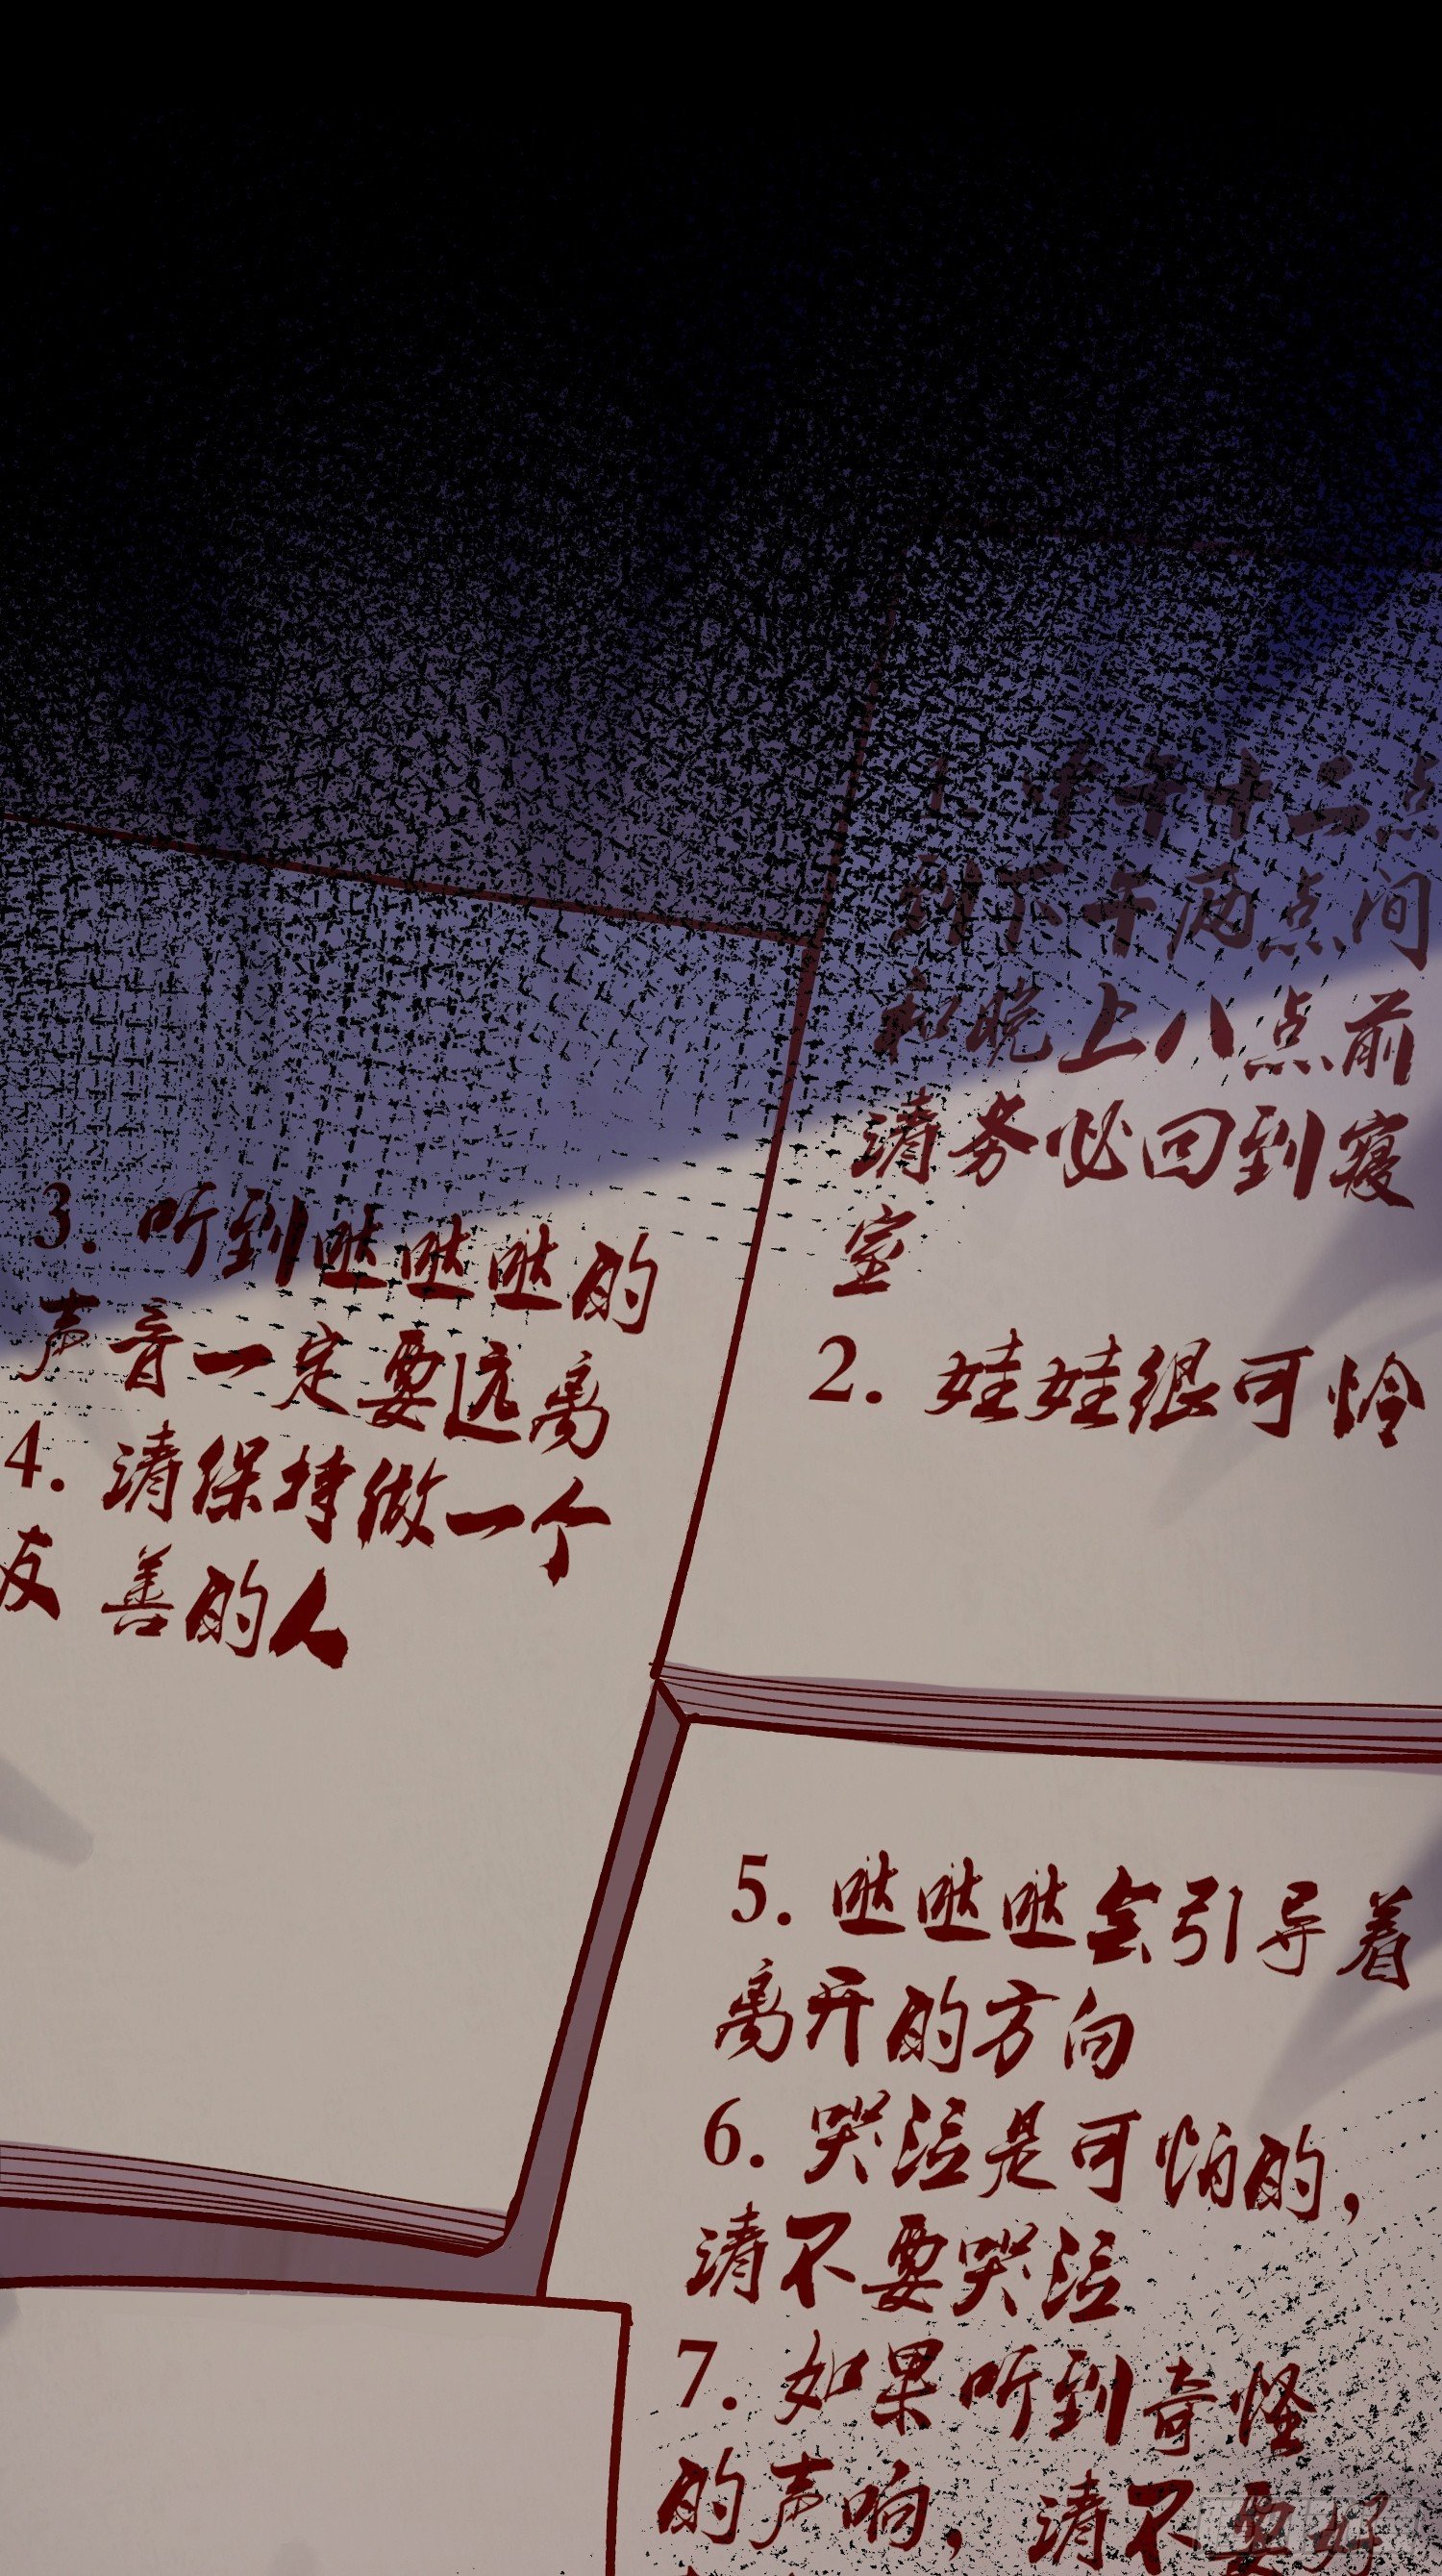 1. 中午十二点
到下午两点间
和晚上八点前
请务必回到寝
室
2. 娃娃很可怜
3. 听到哒哒哒的
声音一定要远离
4. 请保持做一个
友 善的人
5. 哒哒哒会引导着
离开的方向
6. 哭泣是可怕的,
请不要哭泣
7. 如果听到奇怪
的声响, 请不要好